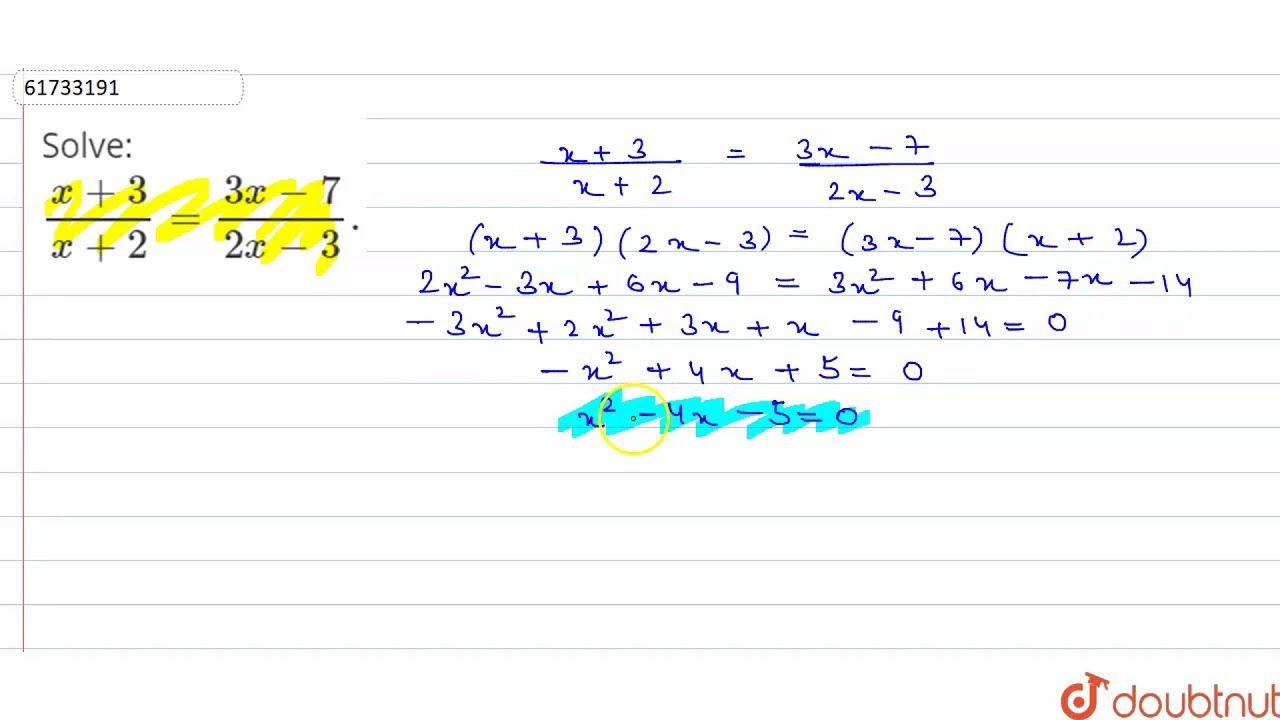 61733191
Solve:
x + 3 / x + 2 = 3x − 7 / 2x − 3.
x + 3 / x + 2 = 3x − 7 / 2x − 3
(x + 3)(2x − 3) = (3x − 7)(x + 2)
2x² − 3x + 6x − 9 = 3x² + 6x − 7x − 14
− 3x² + 2x² + 3x + x − 9 + 14 = 0
− x² + 4x + 5 = 0
x² − 4x − 5 = 0
doubtnut